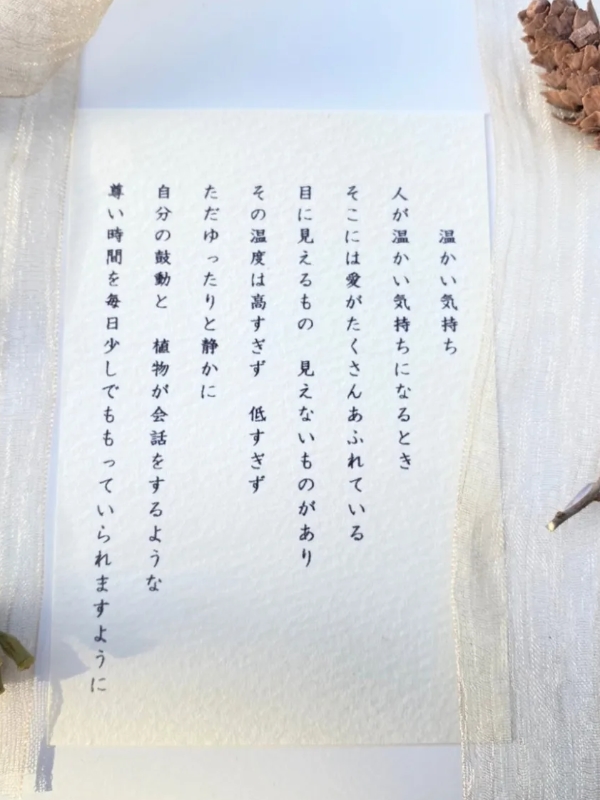 温かい気持ち
人が温かい気持ちになるとき
そこには愛がたくさんあふれている
目に見えるもの　見えないものがあり
その温度は高すぎず　低すぎず
ただゆったりと静かに
自分の鼓動と　植物が会話をするような
尊い時間を毎日少しでももっていられますように